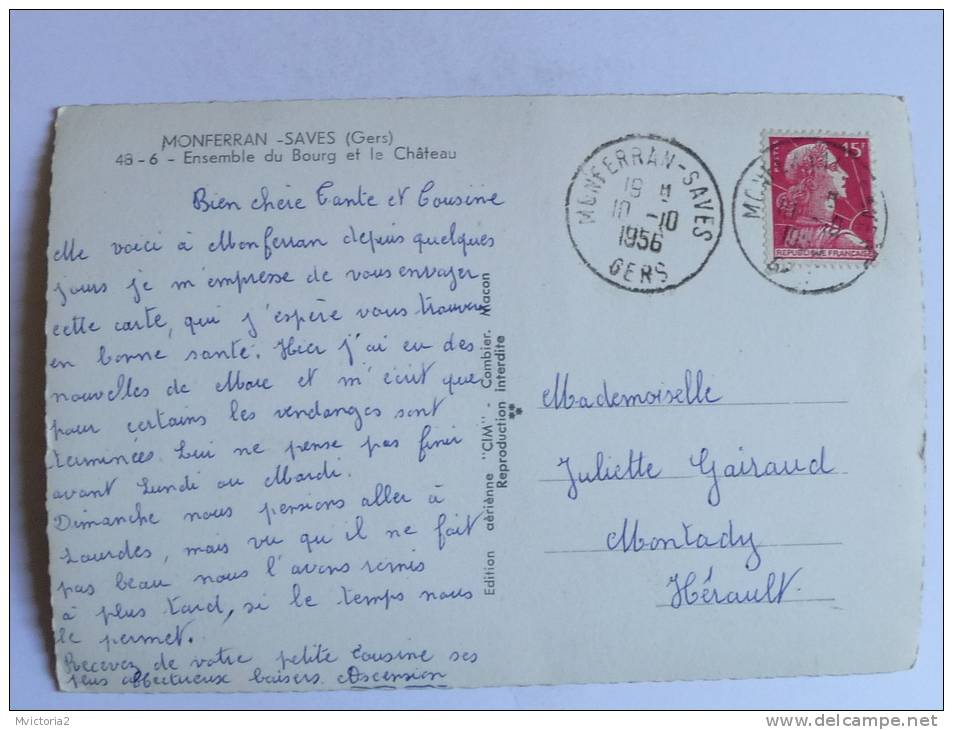 MONFERRAN -SAVES (Gers)
48-6 - Ensemble du Bourg et le Château
Bien chère Tante et Cousine
Me voici à Monferran depuis quelques
jours je m'empresse de vous envoyer
cette carte, qui j'espère vous trouvera
en bonne santé. Hier j'ai eu des
nouvelles de Marc et m'écrit que
pour certains les vendanges sont
terminées. Lui ne pense pas finir
avant Lundi ou Mardi.
Dimanche nous pensions aller à
Lourdes, mais vu qu'il ne fait
pas beau nous l'avons remis
à plus tard, si le temps nous
le permet.
Recevez de votre petite Cousine ses
plus affectueux baisers. Ascension
Edition aérienne "CIM" - Combier. Macon
Reproduction interdite
MONFERRAN-SAVES
19 H
10 -10
1956
GERS
15F
REPUBLIQUE FRANCAISE
Mademoiselle
Juliette Gairaud
Montady
Hérault.
Mvictoria2
www.delcampe.net